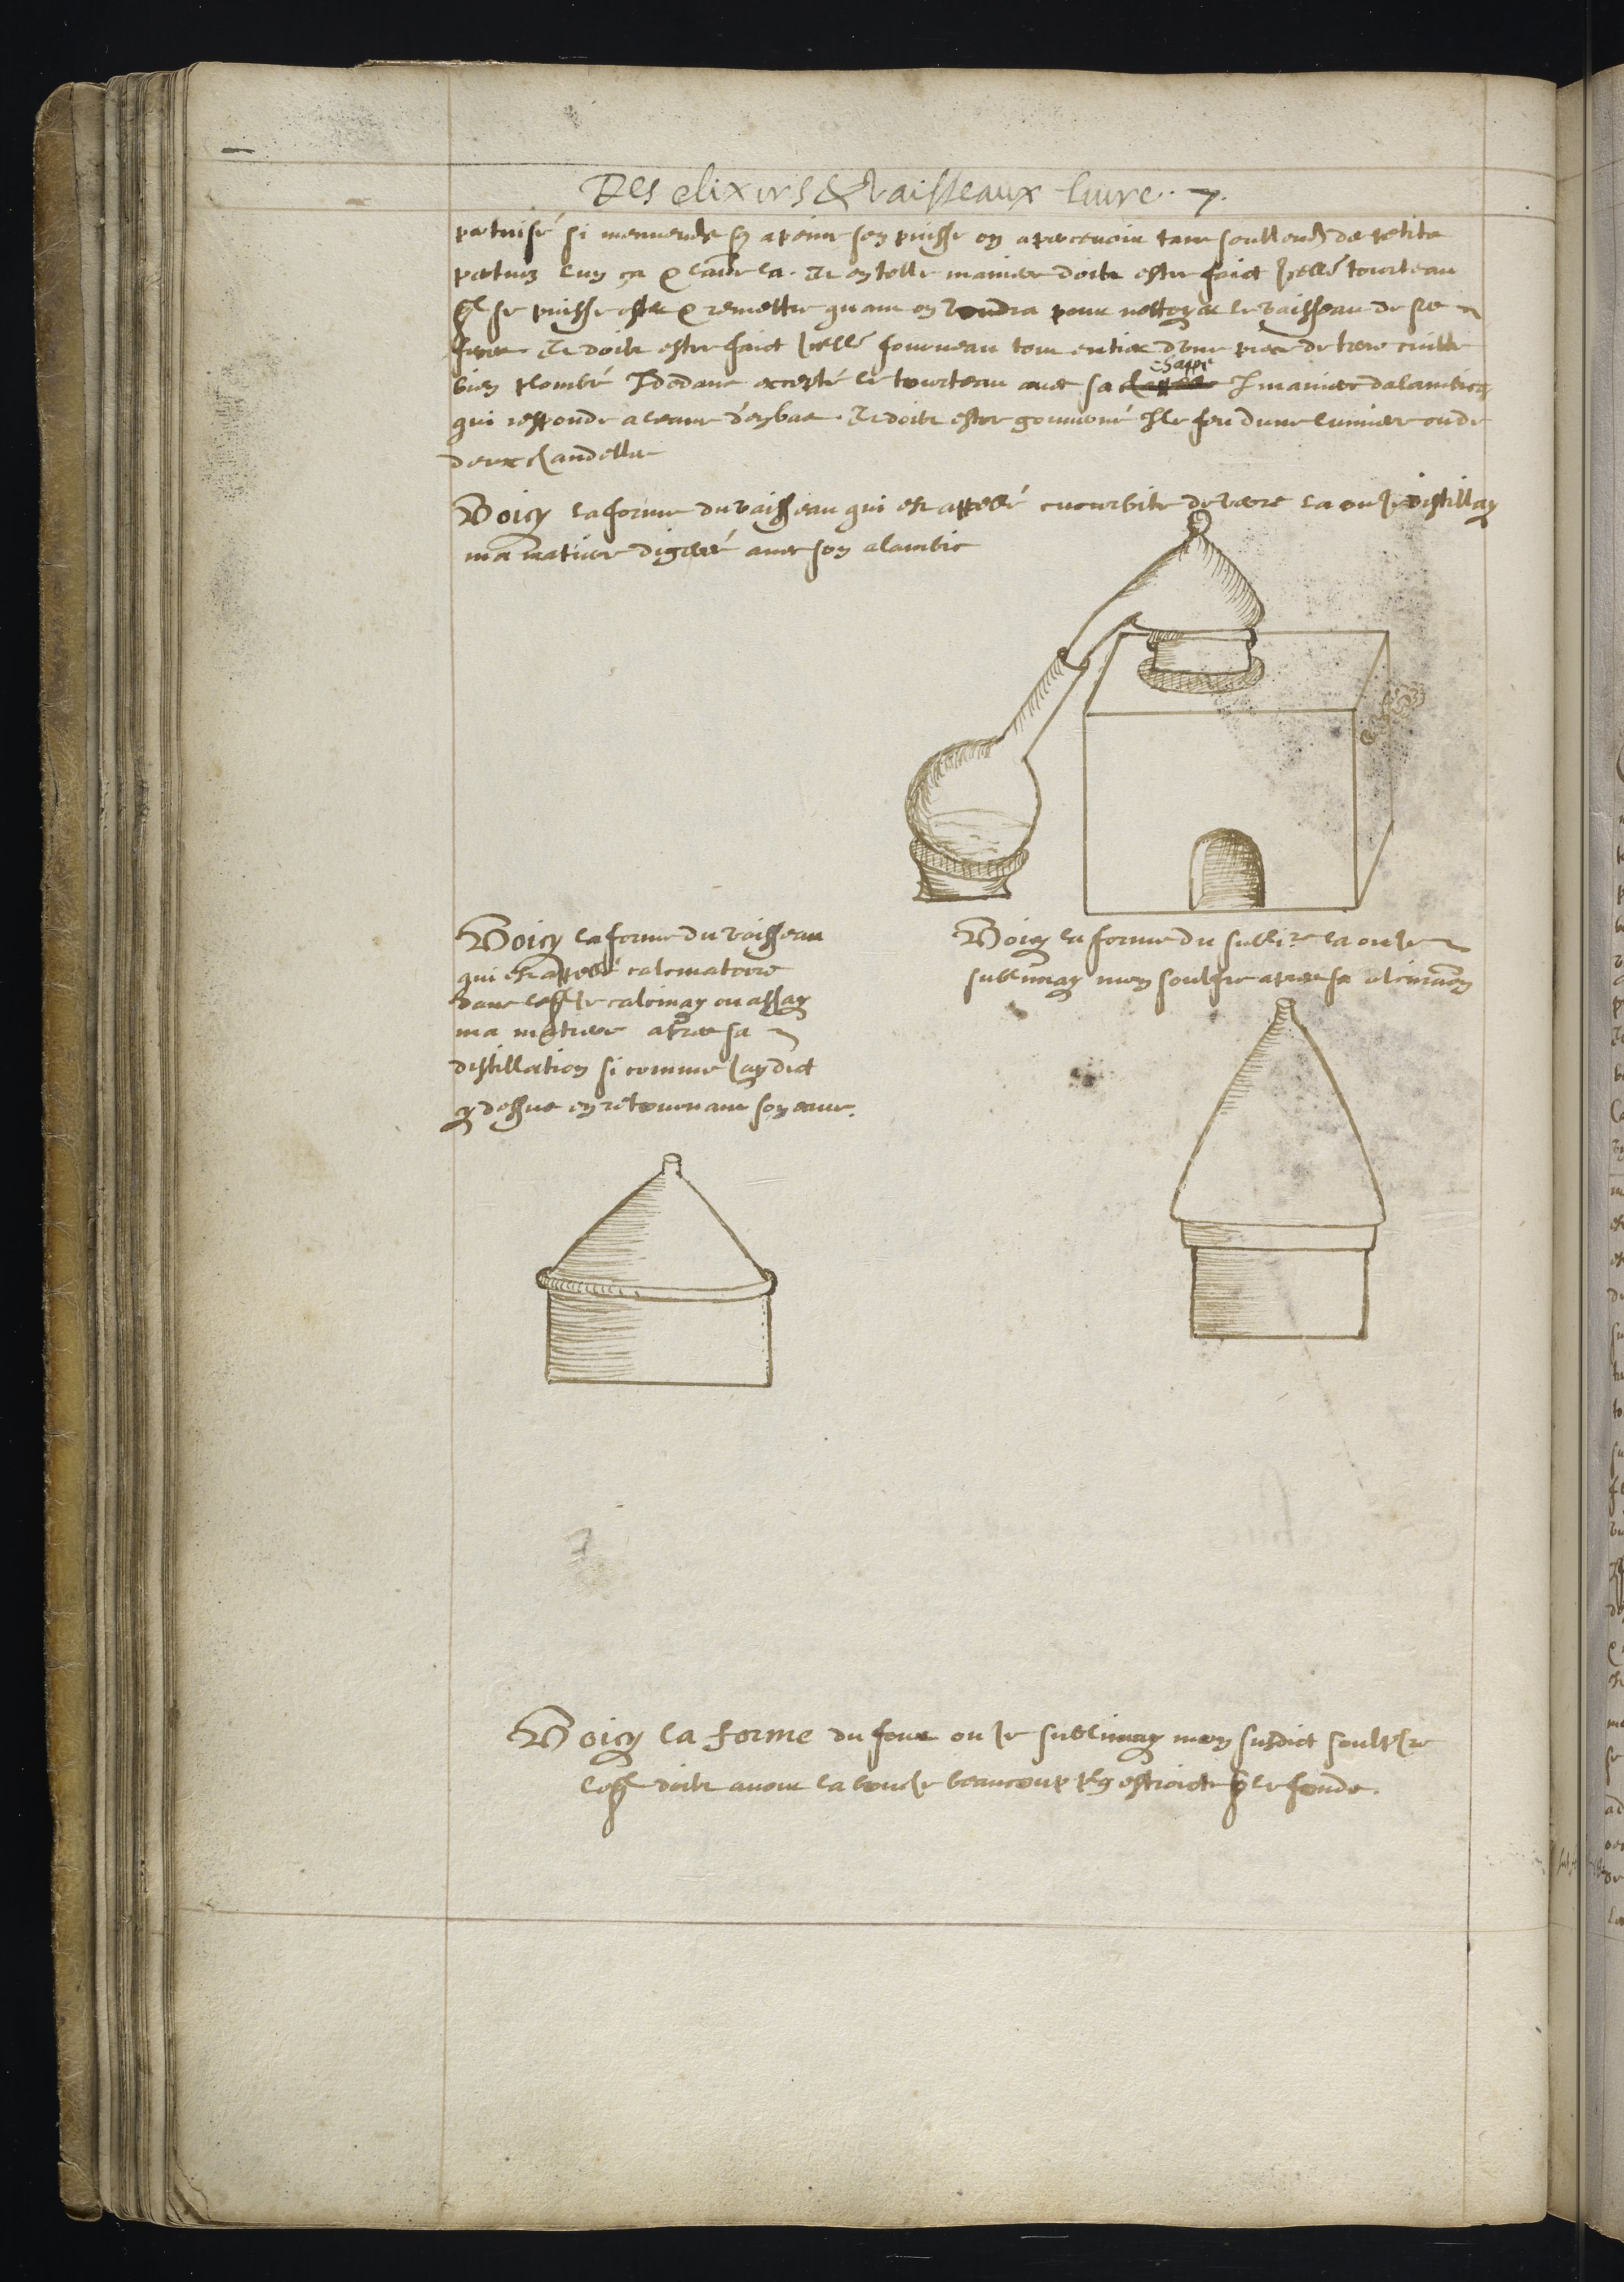 Des elixirs & vaisseaux livre. 7.
pertuisé si menuende a poine son puisse on apercevoir tant soullend de petite
pertuis lun ça & laure la. Et en telle maniere doibt estre faict icelle tourteau
se puisse oster & remettre quant on voudra pour nettoyer le vaisseau de se
Et doibt estre faict icelle fourneau tout entier dune piece de terre cuitte
bien plombé dedans excepté le tourteau avec sa chappe maniere dalambicq
qui responde a leaue denbas. Et doibt estre gouverné le feu dune lumiere ou de
deux chandelles
Voicy la forme du vaisseau qui est appellé cucurbite de verre la ou je distillay
ma matiere digeree avec son alambic
Voicy la forme du vaisseau
qui est appellé calcinatoire
dans leql je calcinay ou assay
ma matiere apres sa
distillation si comme jay dict
cy dessus en retournant son eaue.
Voicy la forme du subli.re la ou je
sublimay mon soulfre apres sa
Voicy la forme du four ou je sublimay mon susdict soulphre
leql doibt avoir la bouche beaucoup plus estroicte q le fonds.